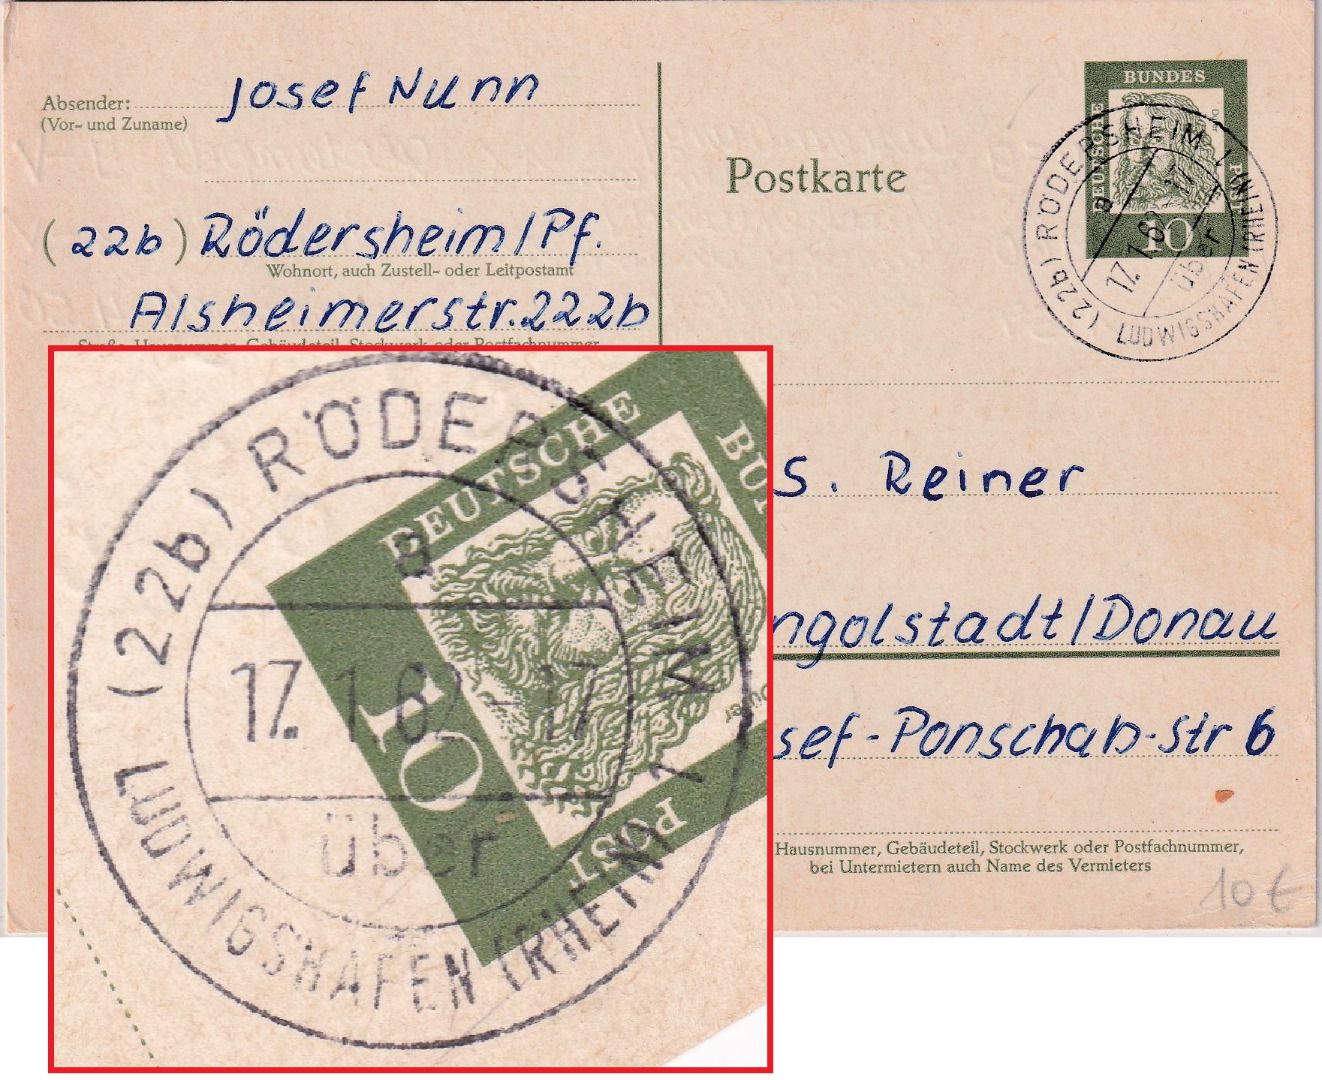 Absender: Josef Nunn
(Vor- und Zuname)
(22b) Rödersheim/Pf.
Wohnort, auch Zustell- oder Leitpostamt
Alsheimerstr. 222b
Straße, Hausnummer, Gebäudeteil, Stockwerk oder Postfachnummer
Postkarte
DEUTSCHE
BUNDES
POST
10
(22b) RÖDERSHEIM 1
a
über
LUDWIGSHAFEN (RHEIN)
S. Reiner
ngolstadt/Donau
sef-Ponschab-Str 6
Hausnummer, Gebäudeteil, Stockwerk oder Postfachnummer,
bei Untermietern auch Name des Vermieters
10 €
(22b) RÖDERSHEIM 1
a
17. 1.62-17
über
LUDWIGSHAFEN (RHEIN)
DEUTSCHE
BU
POST
10